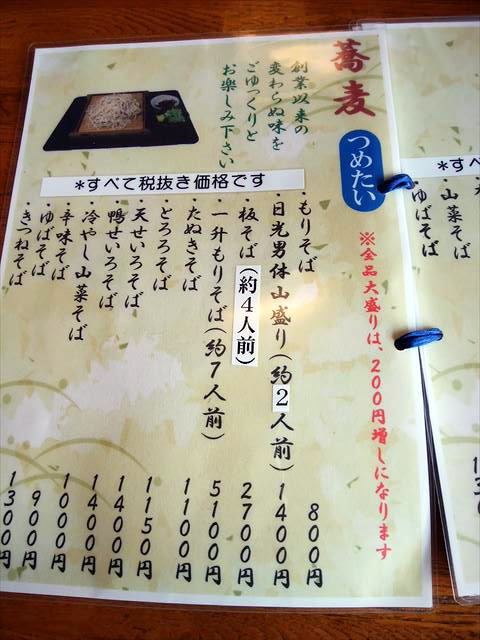 蕎麦
つめたい
※全品大盛りは、200円増しになります
創業以来の
変わらぬ味を
ごゆっくりと
お楽しみ下さい
*すべて税抜き価格です
・もりそば 800円
・日光男体山盛り(約2人前) 1400円
・板そば(約4人前) 2700円
・一升もりそば(約7人前) 5100円
・たぬきそば 1100円
・とろろそば 1150円
・天せいろそば 1400円
・鴨せいろそば 1400円
・冷やし山菜そば 1000円
・辛味そば 900円
・ゆばそば 1300円
・きつねそば
*すべ
・山菜そば
ゆばそば